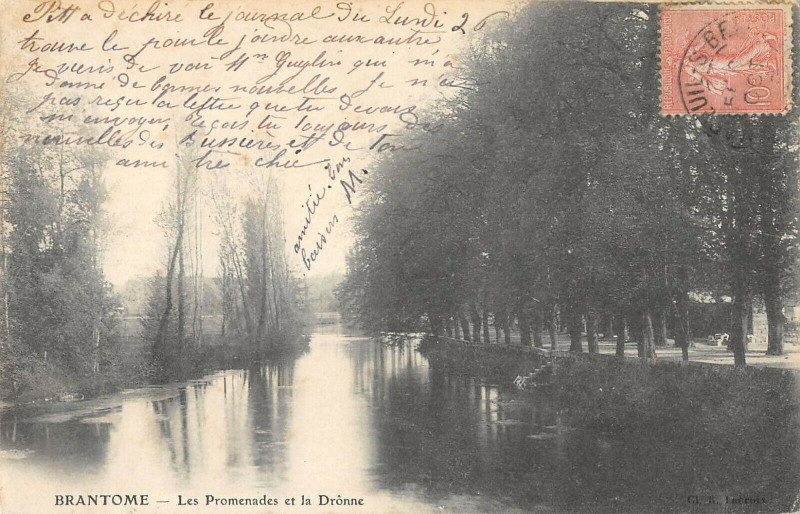 Pitt a déchiré le journal du Lundi 26
trouve le pour le joindre aux autre
Je viens de voir Mme qui m'a
donné de bonnes nouvelles. Je n'ai
pas reçu la lettre que tu devais
m'envoyer. Reçois tu toujours des
nouvelles des Bussières et de ton
ami
amitié. bons
baisers M.
BRANTOME — Les Promenades et la Drônne
Cl. R. Lacroix